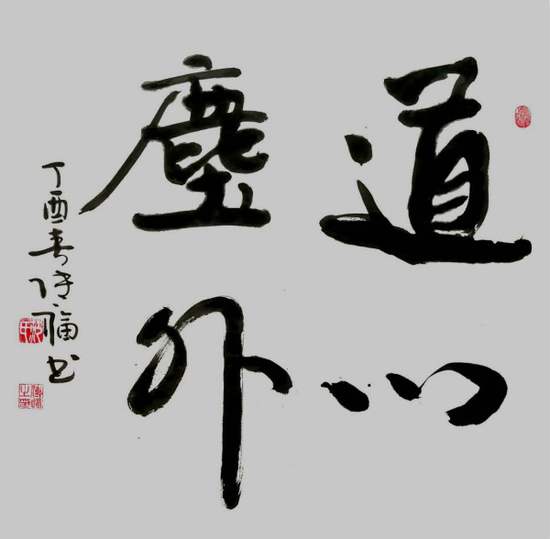 道心
塵外
丁酉春传福书